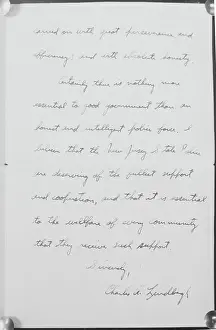 carried on with great perseverance and
efficiency; and with absolute honesty.
Certainly there is nothing more
essential to good government than an
honest and intelligent police force. I
believe that the New Jersey State Police
are deserving of the fullest support
and cooperation, and that it is essential
to the welfare of every community
that they receive such support.
Sincerely,
Charles A. Lindbergh